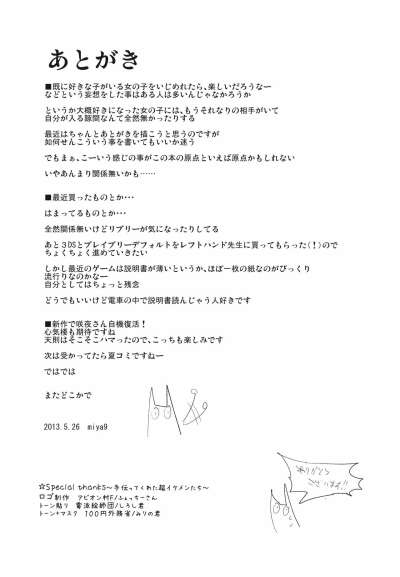 あとがき
■既に好きな子がいる女の子をいじめれたら、楽しいだろうなー
などという妄想をした事はある人は多いんじゃなかろうか
というか大概好きになった女の子には、もうそれなりの相手がいて
自分が入る隙間なんて全然無かったりする
最近はちゃんとあとがきを描こうと思うのですが
如何せんこういう事を書いてもいいか迷う
でもまぁ、こーいう感じの事がこの本の原点といえば原点かもしれない
いやあんまり関係無いかも……
■最近買ったものとか・・・
はまってるものとか・・・
全然関係無いけどリブリーが気になったりしてる
あと3DSとブレイブリーデフォルトをレフトハンド先生に買ってもらった(！)ので
ちょくちょく進めていきたい
しかし最近のゲームは説明書が薄いというか、ほぼ一枚の紙なのがびっくり
流行りなのかなー
自分としてはちょっと残念
どうでもいいけど電車の中で説明書読んじゃう人好きです
■新作で咲夜さん自機復活！
心気楼も期待ですね
天則はそこそこハマったので、こっちも楽しみです
次は受かってたら夏コミですねー
ではでは
またどこかで
2013.5.26 miya9
ありがとう
ございます!!
☆Special thanks～手伝ってくれた超イケメンたち～
ロゴ制作 アビオン村F/ふぉっちーさん
トーン貼り 電派絵師団/しろし君
トーン+マスク 100円外務省/みりの君